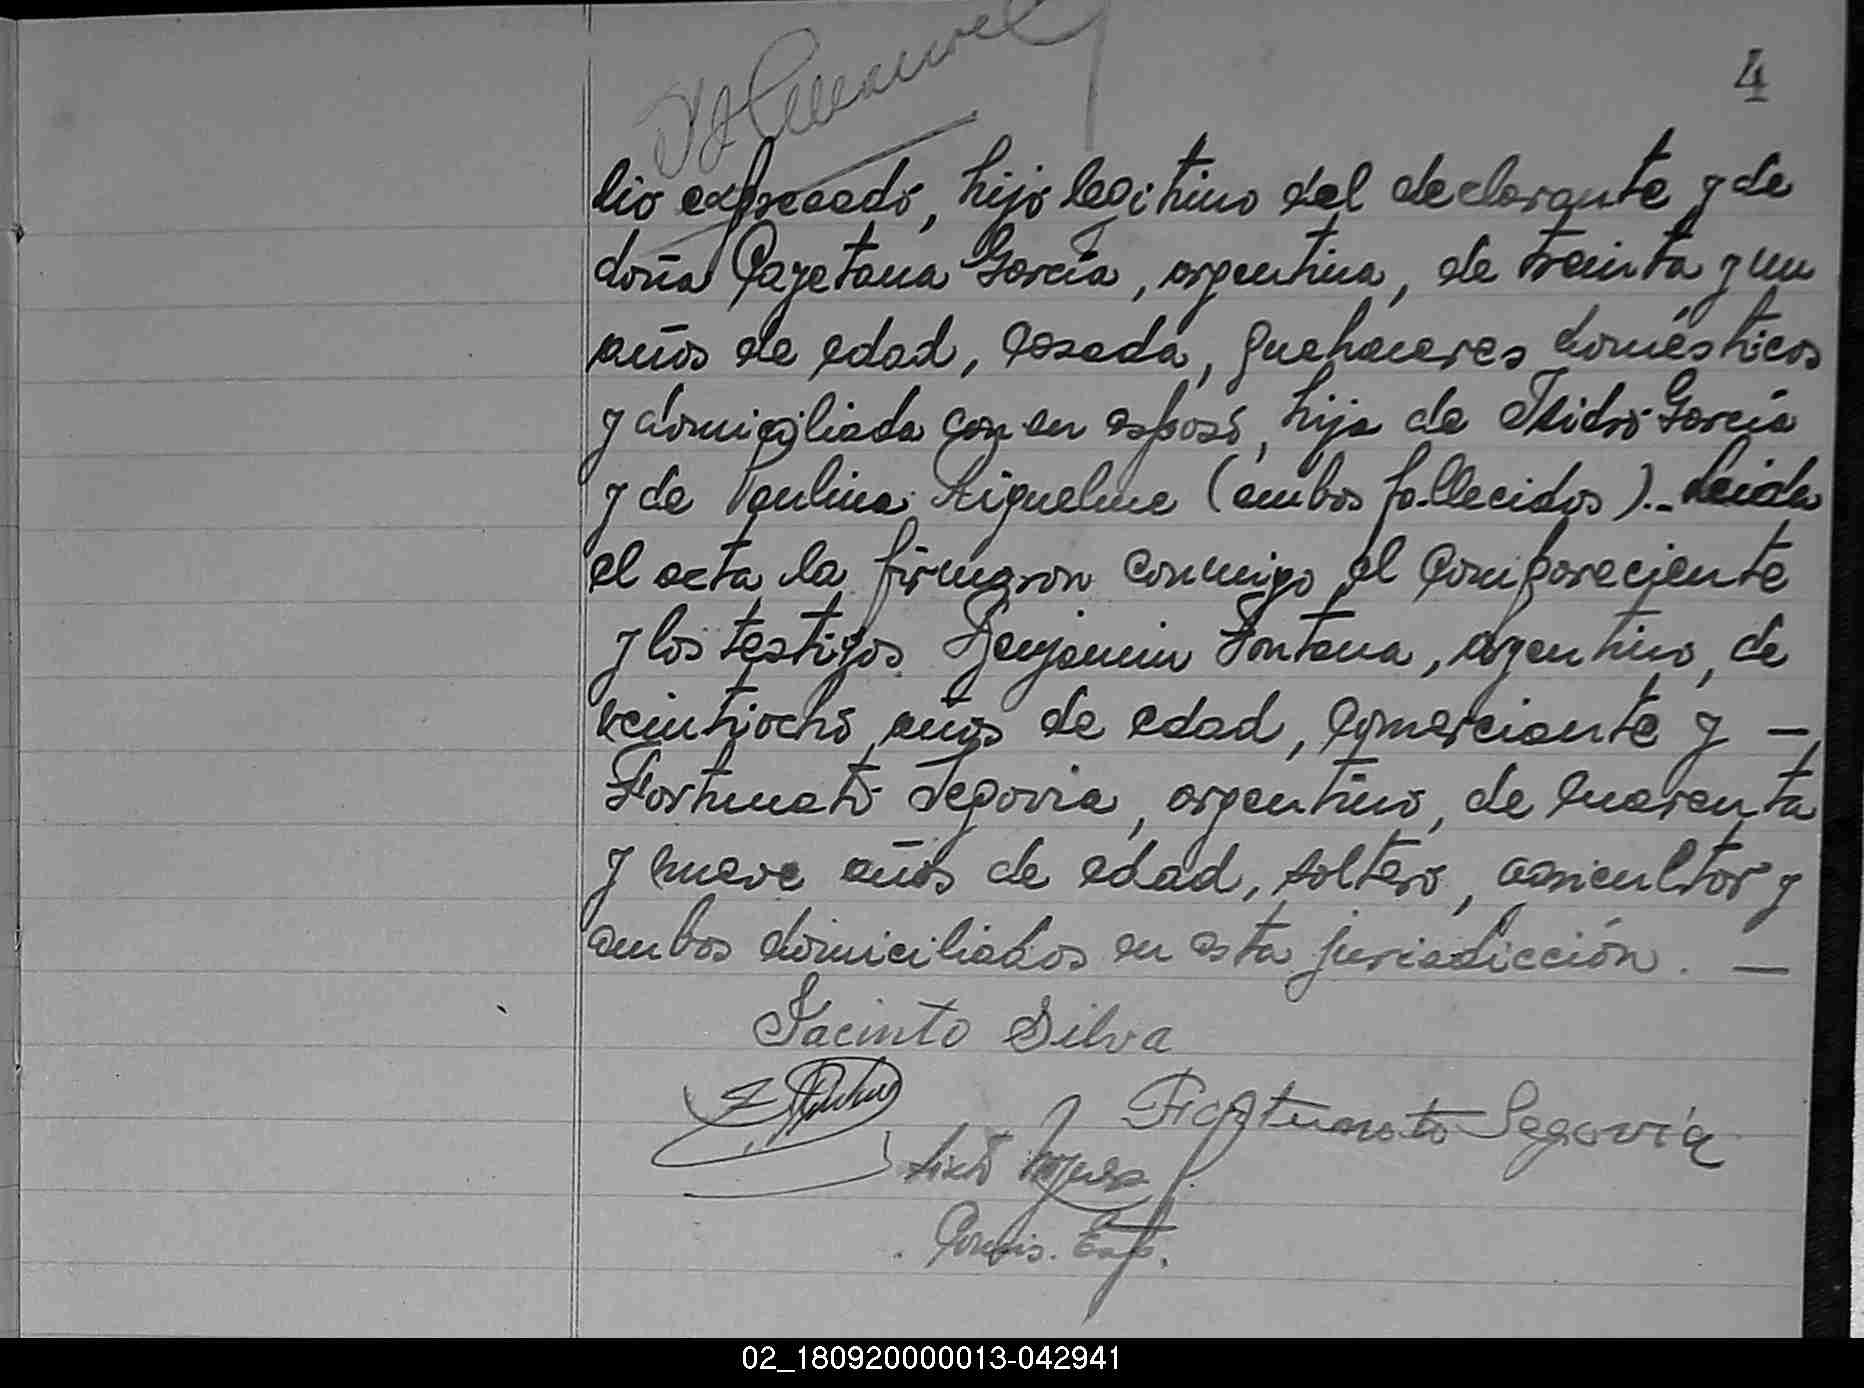 4
lio expresado, hijo legitimo del declarante y de
doña Cayetana García, argentina, de treinta y un
años de edad, casada, quehaceres domésticos
y domiciliada con su esposo, hija de Isidro García
y de Paulina Riquelme (ambos fallecidos).- Leida
el acta la firmaron conmigo el compareciente
y los testigos Benjamin Fontana, argentino, de
veintiocho años de edad, comerciante y —
Fortunato Segovia, argentino, de cuarenta
y nueve años de edad, soltero, agricultor y
ambos domiciliados en esta jurisdicción. —
Jacinto Silva
Fortunato Segovia
Comis.
02_180920000013-042941